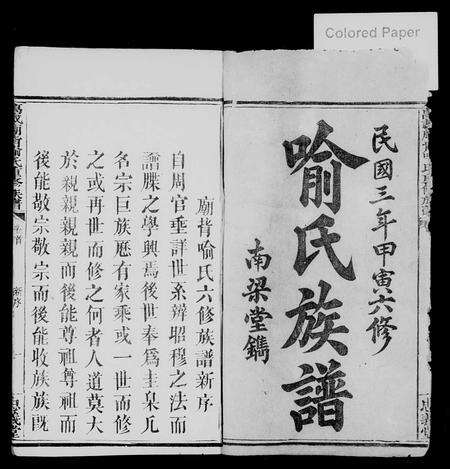 Colored Paper
民國三年甲寅六修
喻氏族譜
南梁堂鐫
廟背喻氏六修族譜新序
自周官垂詳世系辨昭穆之法而
譜牒之學興焉後世奉為圭臬凡
名宗巨族厯有家乘或一世而修
之或再世而修之何者人道莫大
於親親親親而後能尊祖尊祖而
後能敬宗敬宗而後能收族族既